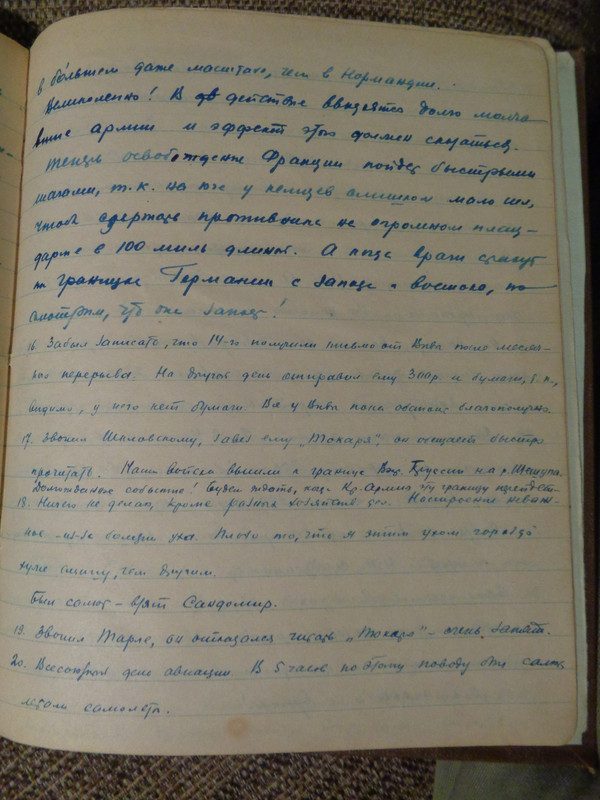 в большем даже масштабе, чем в Нормандии.
Великолепно! В действие вводятся долго молча
вшие армии и эффект этого должен сказаться.
Теперь освобождение Франции пойдет быстрыми
шагами, т.к. на юге у немцев слишком мало сил,
чтоб сдержать противника на огромном плац-
дарме в 100 миль длиной. А когда враги
на границах Германии с запада и востока, по-
смотрим, что они запоют!
16. Забыл записать, что 14-го получили письмо от Вивы после месяч-
ного перерыва. На другой день отправил ему заказ. и бумаги, т.к.,
видимо, у него нет бумаги. Вся у Вивы пока обстоит благополучно.
17. Звонил Шкловскому, завез ему „Токаря", он обещает быстро
прочитать. Наши войска вышли к границе Вост. Пруссии на р. Шешупа.
Долгожданное событие! Будем ждать, когда Кр. Армия эту границу перейдет.
18. Ничего не делал, кроме разных хозяйств. дел. Настроение неваж-
ное -из-за болезни уха. Плохо то, что я этим ухом гораздо
хуже слышу, чем другим.
Был салют - взят Сандомир.
19. Звонил Тарле, он отказался читать „Токаря" - очень занят.
20. Всесоюзный день авиации. В 5 часов по этому поводу был салют,
летали самолеты.